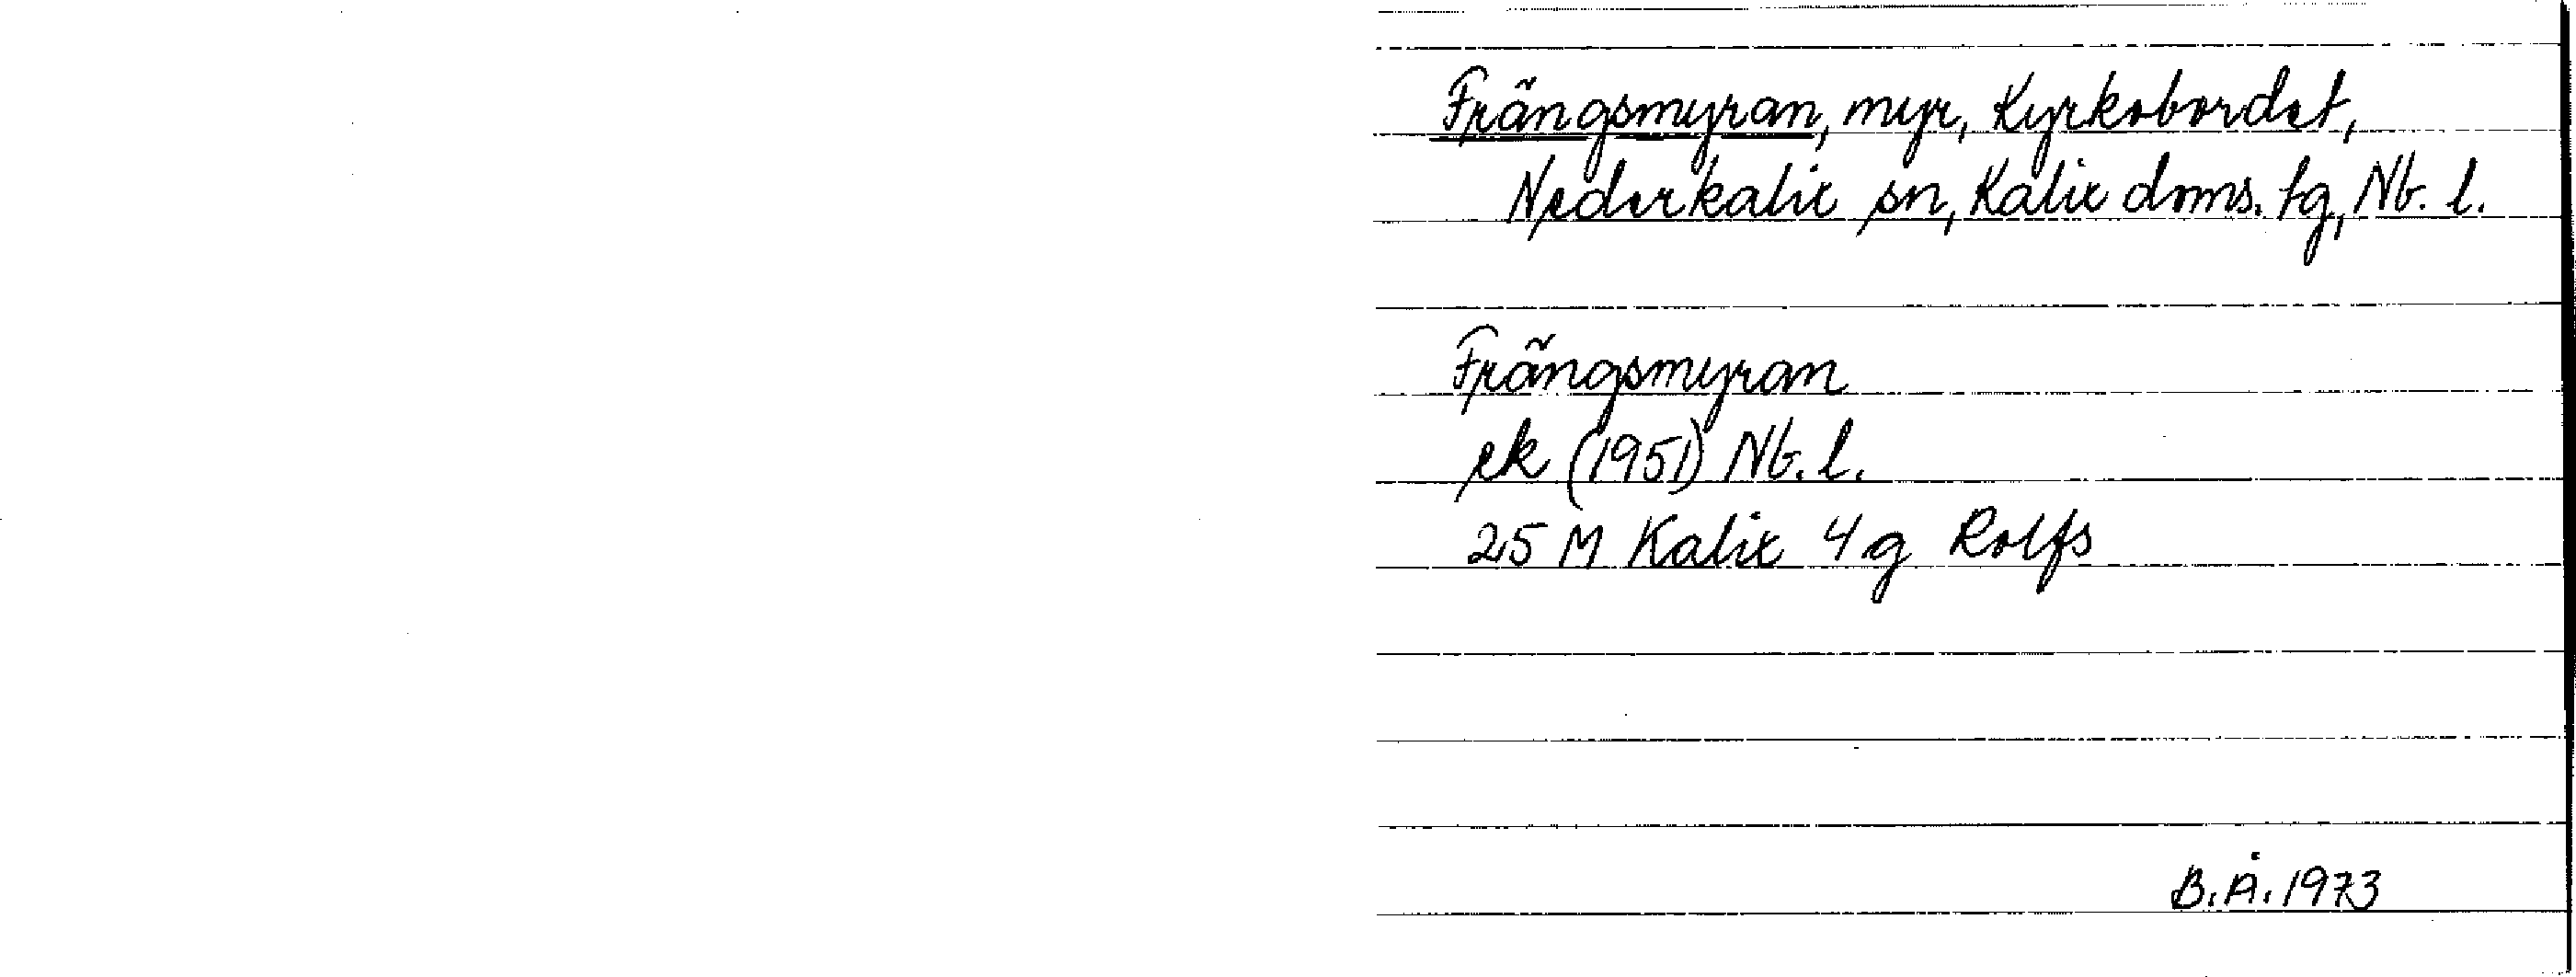 Frängsmyran, myr, Kyrkobordet,
Nederkalix sn, Kalix doms. tg, Nb. l.
Frängsmyran
ek (1951) Nb. l.
25 M Kalix 4 g Rolfs
B.Å. 1973